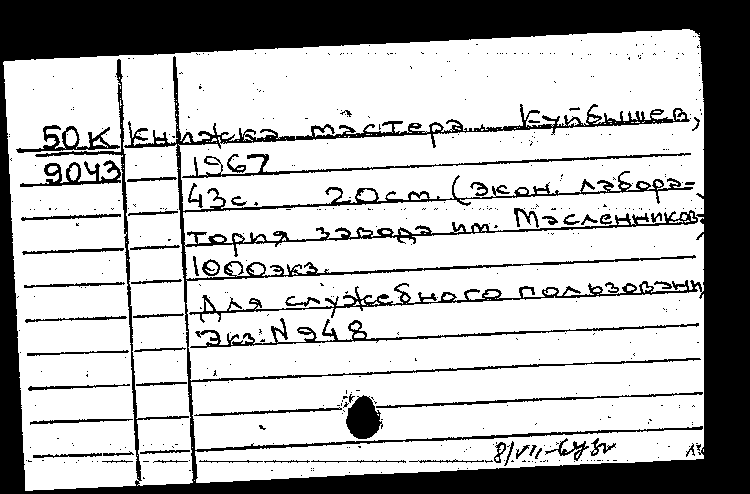 50К Книжка мастера. Куйбышев,
9043 1967
43с. 20см. (Экон. лабора-
тория завода им. Масленникова
1000экз.
Для служебного пользовани
Экз. N 948
8/VII-